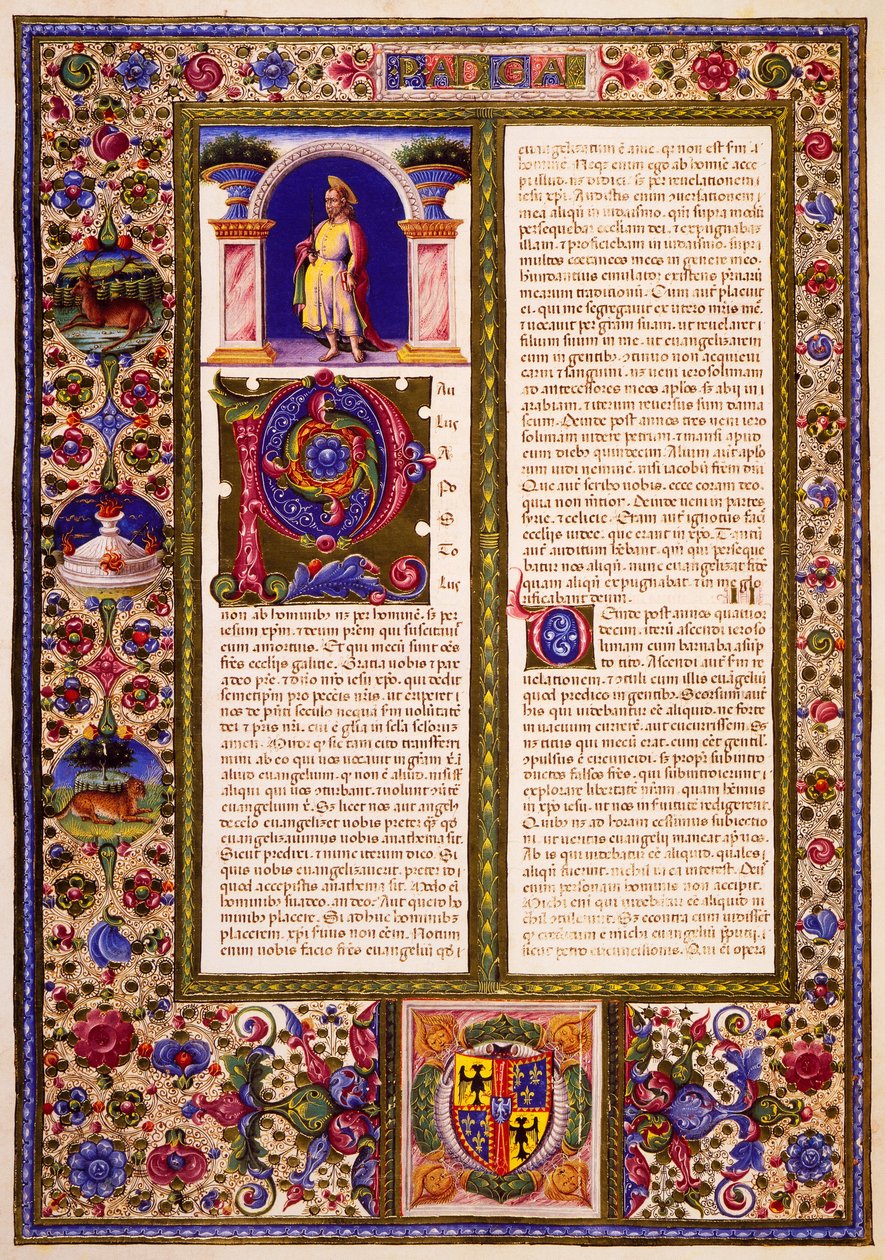 PAD GAL
PAu
lus
A
po
s
to
lus
non ab hominibus nz per hominē. sz per
iesum xpm̄. & deum prēm qui suscitauit
eum a mortuis. Et qui mecū sunt oēs
frēs ecclijs galatie. Gratia uobis & pax
a deo prē. & dno nrō iesu xpo. qui dedit
semetipm̄ pro peccīs nrīs. ut eriperet
nos de pn̄ti seculo nequa sm̄ uoluntatē
dei & pris nrī. cui ē glīa in sclā selorum
amen. Miror q sic tam cito transferri
mini ab eo qui uos uocauit in grām
aliud euangelium. qd non ē aliud. nisi st
aliqui qui uos cturbant. & uolunt cuertē
euangelium. Sz licet nos aut angels
de celo euangelizet uobis preter q qd
euangelizauimus uobis anathema sit.
Sicut predixi. & nunc iterum dico. Si
quis uobis euangelizauerit. preter id
quod accepistis anathema sit. Modo eī
hominibus suadeo. an deo: Aut quero ho
minibus placere. Si adhuc hominibus
placerem. xpi seruus non eēm. Notum
enim uobis facio frēs euangeliū qd
euangelizatum ē a me. qr non est sm̄
hominē. Neqz enim ego ab homīe acce
pi illud. nz didici. sz per reuelationem
iesu xpi. Audistis enim cuersationem
mea aliqñ in iudaismo. qm̄ supra modū
persequebar ecclīam dei. & expugnabaz
illam. & proficiebam in iudaismo. supra
multos coetaneos meos in genere meo.
habundantius emulator existens prnarū
mearum traditionū. Cum aut placuit
ei. qui me segregauit ex utero mrīs meē.
& uocauit per grām suam. ut reuelaret
filium suum in me. ut euangelizarem
eum in gentibus. ctinuo non acquieui
carni & sanguini. nz ueni ierosolimam
ad antecessores meos aplōs. sz abij in
arabiam. & iterum reuersus sum dama
scum. Deinde post annos tres ueni iero
solimam uidere petrum. & mansi apud
eum diebus quindecim. Alium aut aplo
rum uidi neminē. nisi iacobū frēm dnī
Que aut scribo uobis. ecce coram deo.
quia non mentior. Deinde ueni in partes
syrie. & celicie. Eram aut ignotus faciē
ecclijs iudee. que erant in xpo. Tantū
aut auditum habebant. qm̄ qui perseque
batur nos aliqñ. nunc euangelizat fidē
quam aliqñ expugnabat. & in me glo
rificabant deum. II
Deinde post annos quatuor
decim. iterū ascendi ieroso
limam cum barnaba assump
to tito. Ascendi aut sm̄ re
uelationem. & ctuli cum illis euangeliū
quod predico in gentibus. Seorsum aut
his qui uidebantur eē aliquid. ne forte
in uacuum currerē. aut cucurrissem. Sz
nz titus qui mecū erat. cum eēt gentilis
cpulsus ē circuncidi. sz propter subintro
ductos falsos frēs. qui subintroierunt
explorare libertatē nrām. quam habemus
in xpo iesu. ut nos in seruitutē redigerent.
Quibus nz ad horam cessimus subiectio
ni. ut ueritas euangelij maneat apud uos.
Ab is qui uidebatur eē aliquid. quales
aliqñ fuerint. nichil mea interest. Deus
enim personam hominis non accipit.
Michi enī qui uidebatur eē aliquid ni
chil ctulerunt. Sz econtra cum uidissēt
qz creditum ē michi euangeliū pputij.
sicut petro circuncisionis. Qui eī opera